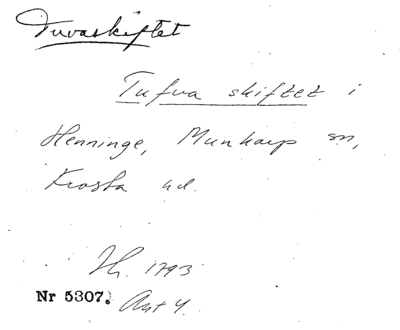 Tuvaskiftet
Tufva skiftet i
Henninge, Munkarp sn,
Frosta hd.
Jh. 1793
Nr 5307. Akt 4.